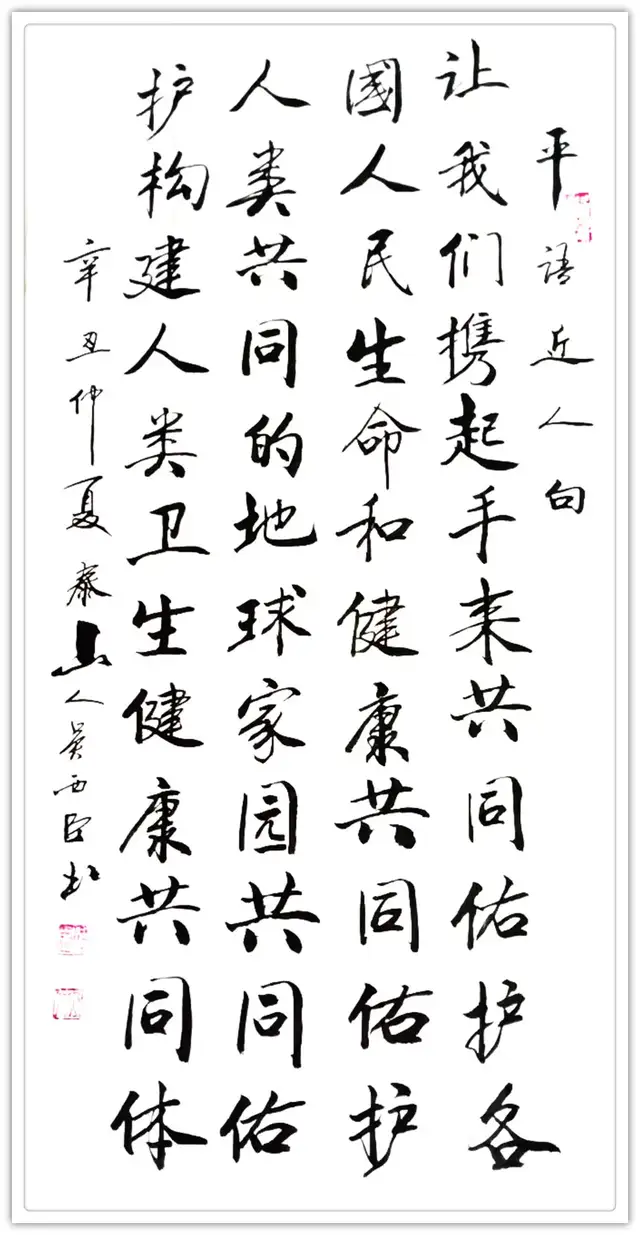 平語近人句
让我们携起手来共同佑护各
國人民生命和健康共同佑护
人类共同的地球家园共同佑
护构建人类卫生健康共同体
辛丑仲夏泰山人吴西臣书